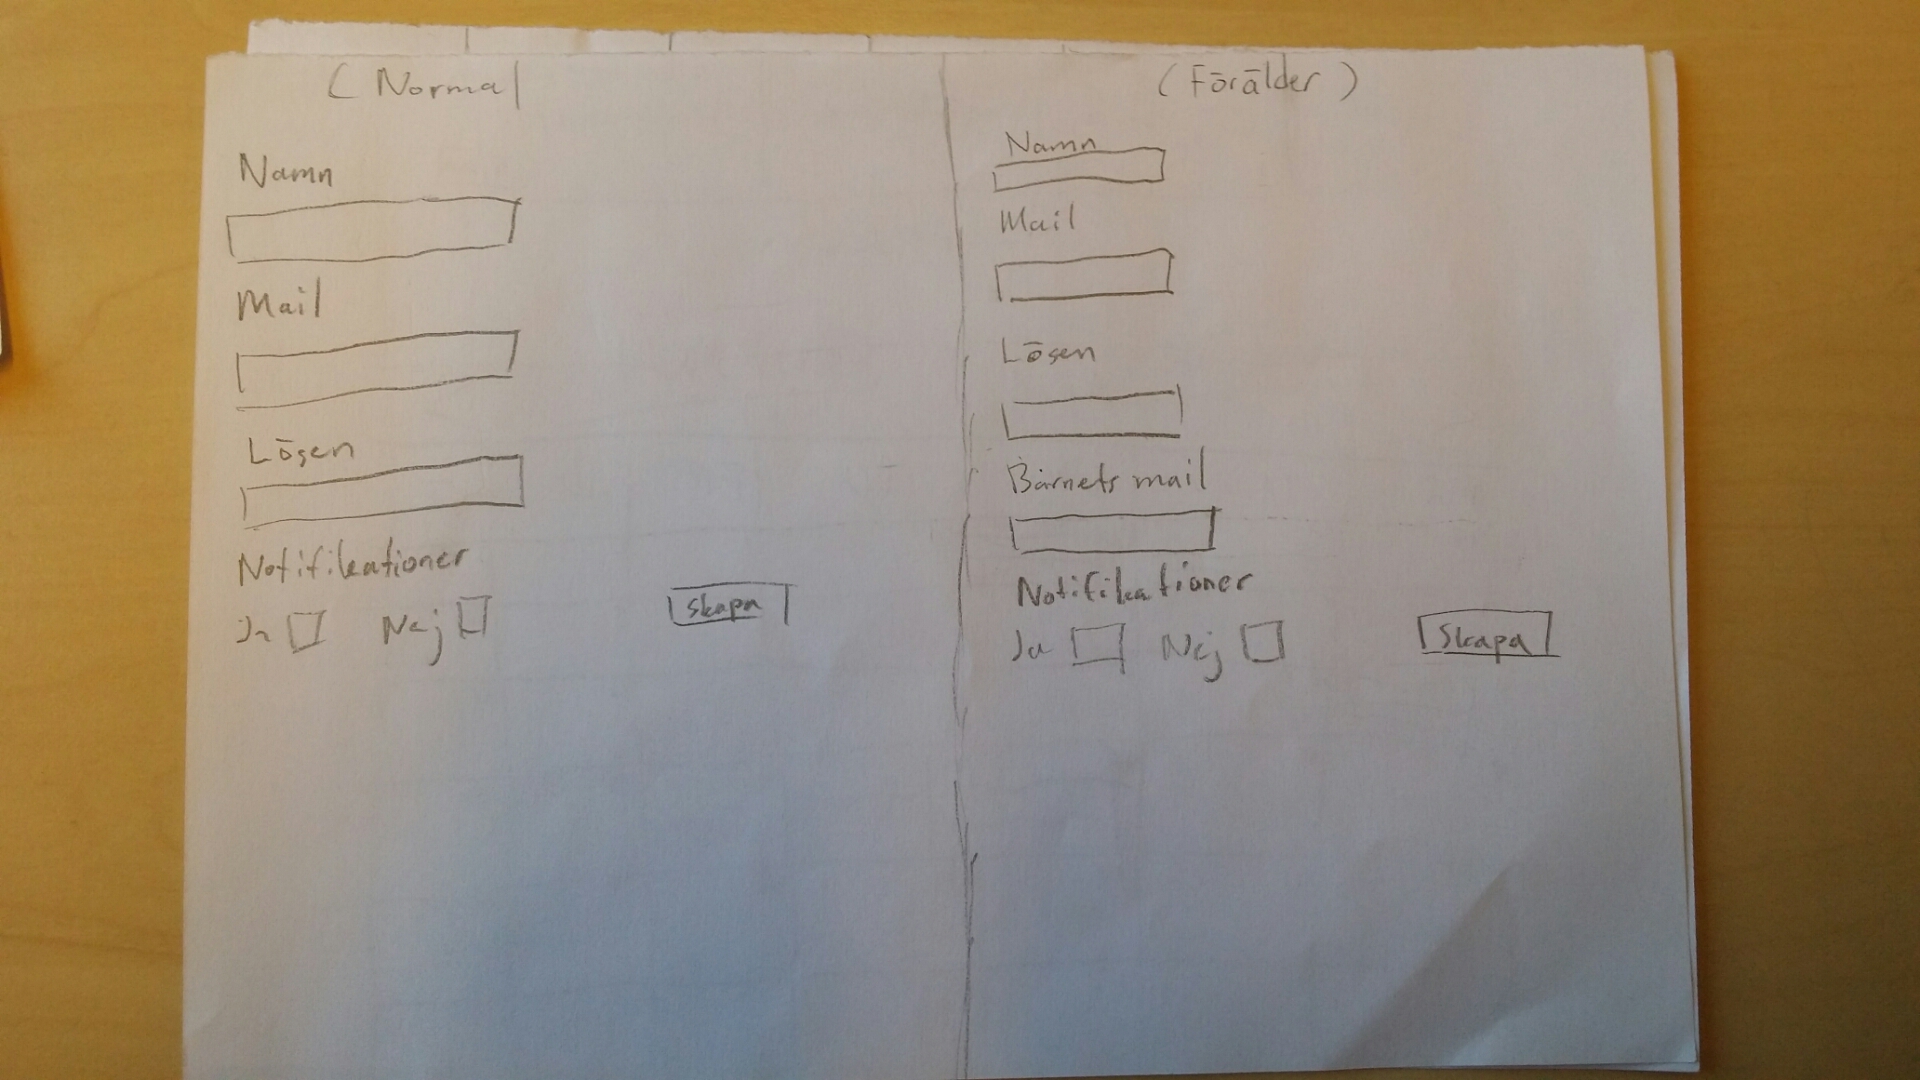 (Normal
Namn
Mail
Lösen
Notifikationer
Ja Nej
Skapa
(Förälder)
Namn
Mail
Lösen
Barnets mail
Notifikationer
Ja Nej
Skapa